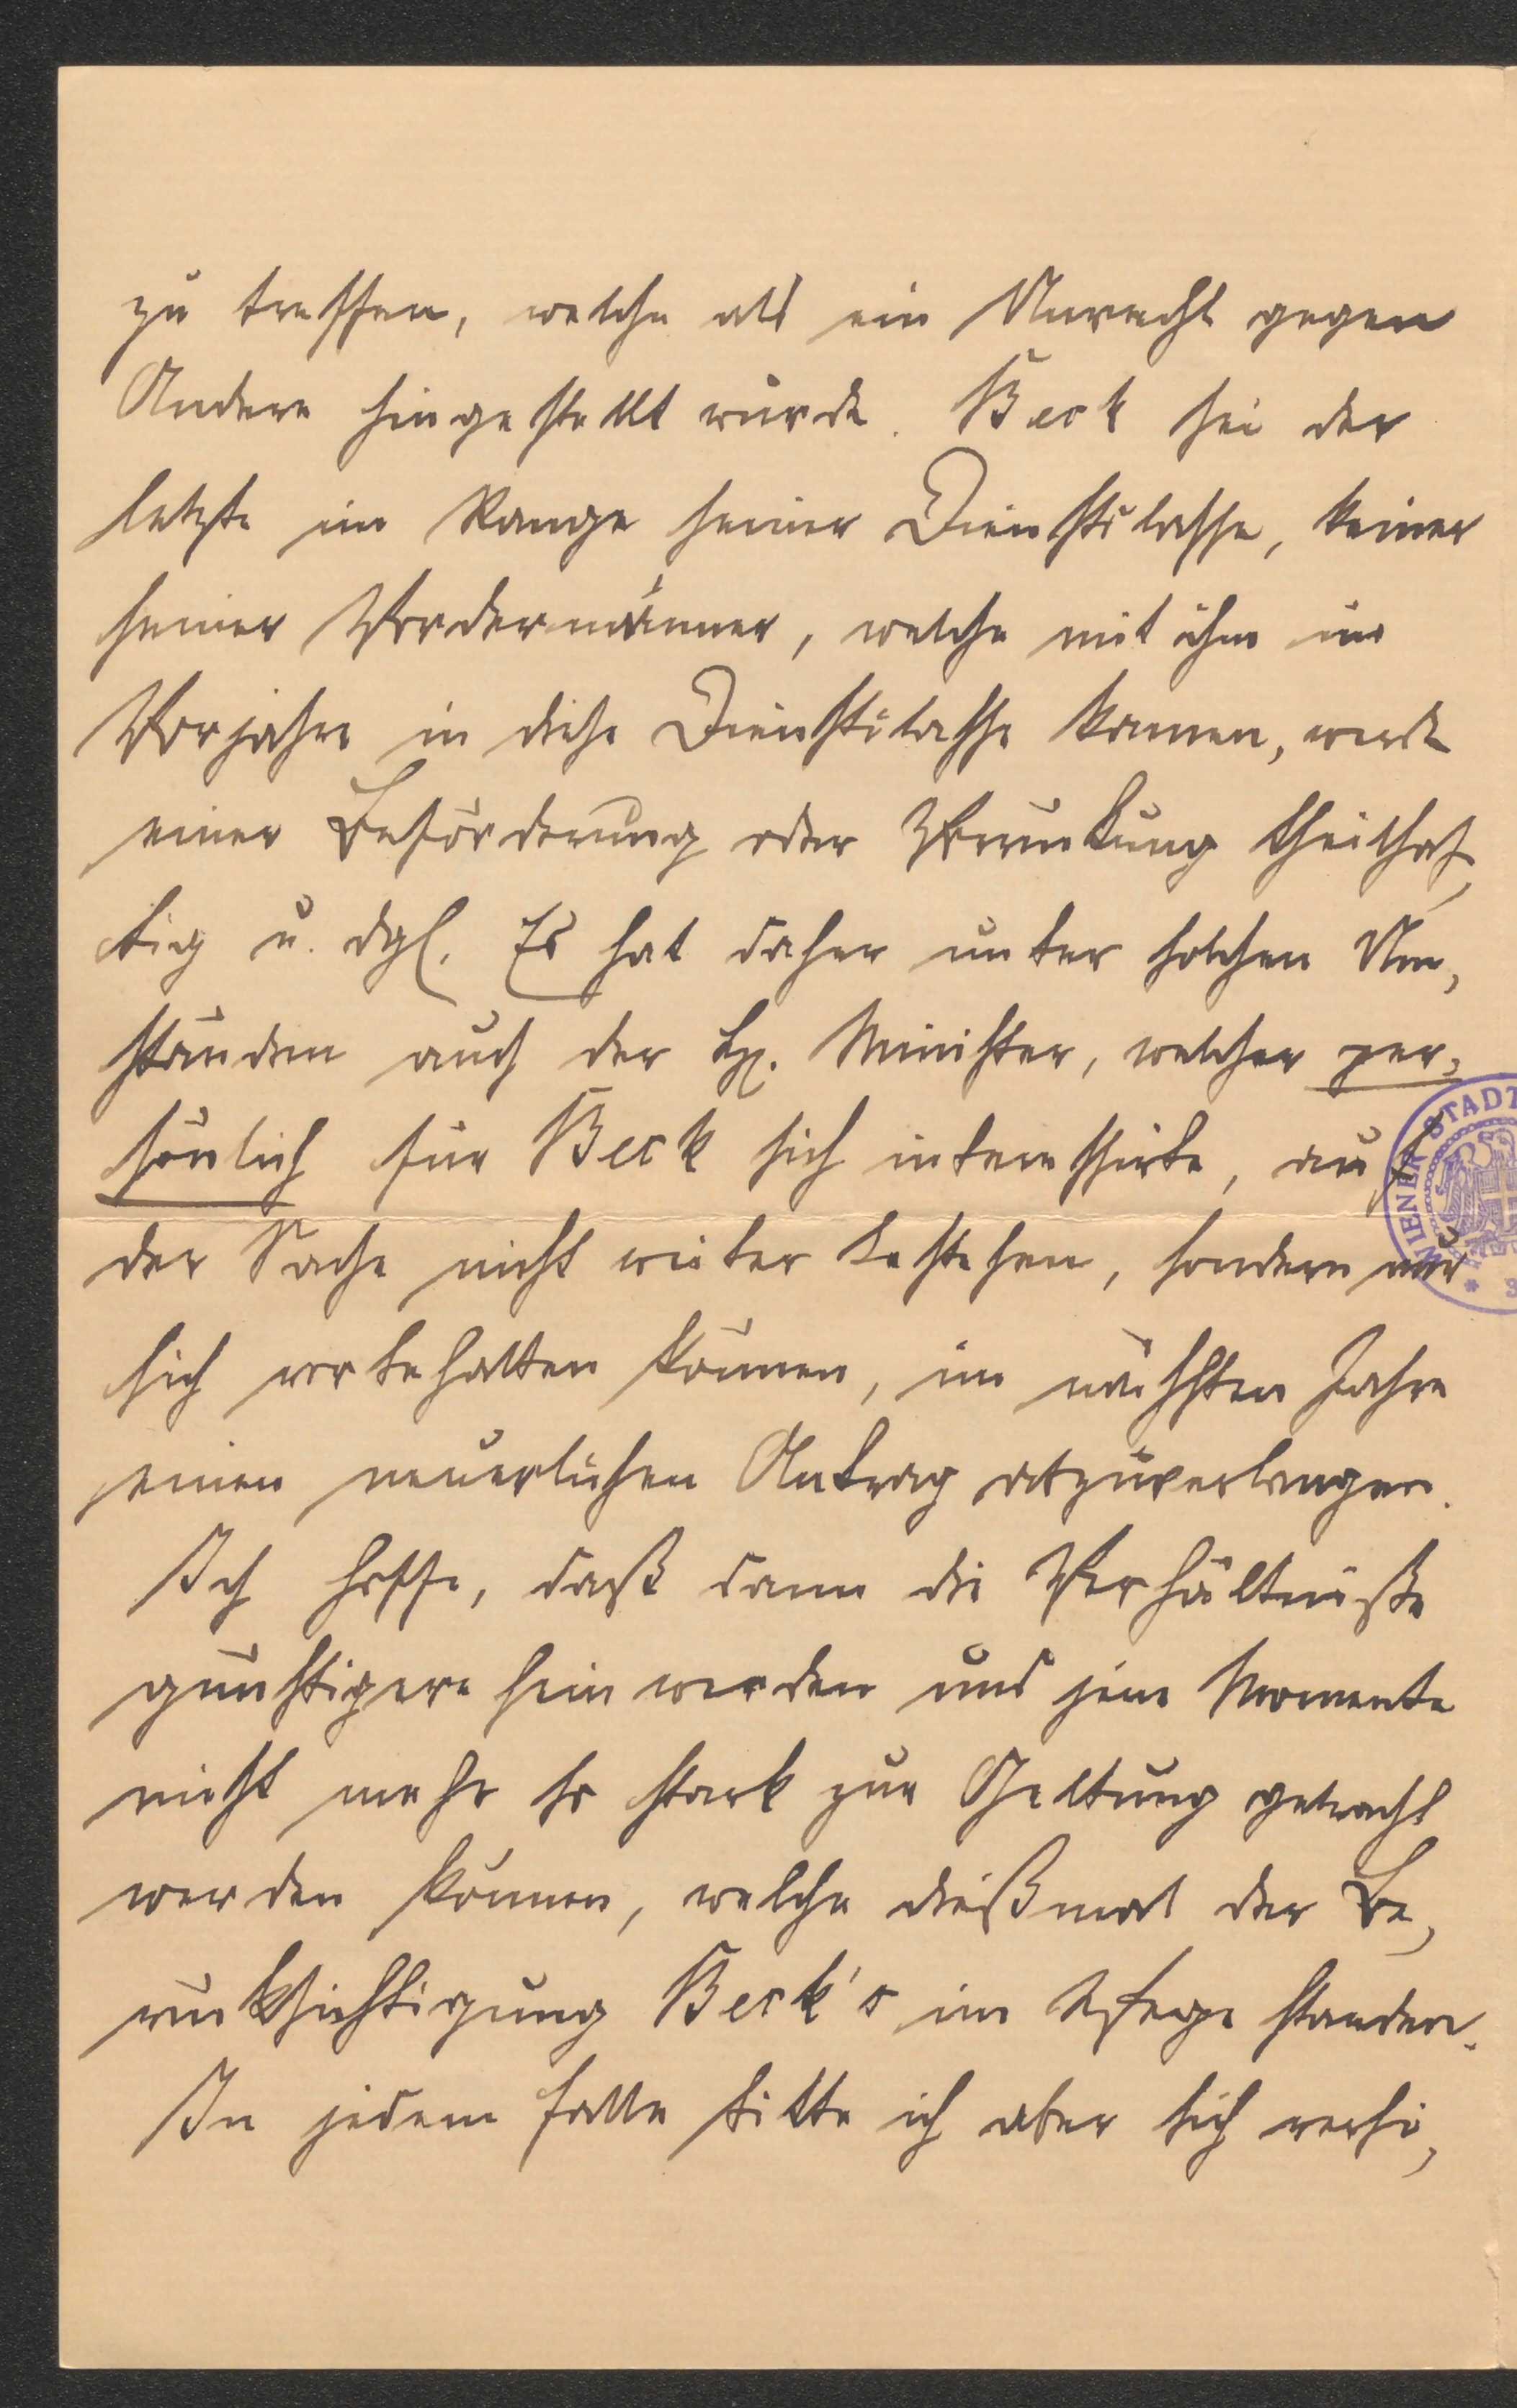 zu treffen, welche als ein Unrecht gegen
Andere hingestellt würde. Beck sei der
letzte im Range seiner Dienstclasse, keiner
seiner Vordermänner, welche mit ihm im
Vorjahre in diese Dienstclasse kamen, werde
einer Beförderung oder Vorrückung theilhaf-
tig u. dgl. Es hat daher unter solchen Um-
ständen auch der H. Minister, welcher per-
sönlich für Beck sich interessirte, auf
der Sache nicht weiter bestehen, sondern nur
sich vorbehalten können, im nächsten Jahre
einen neuerlichen Antrag abzuverlangen.
Ich hoffe, daß dann die Verhältniße
günstigere sein werden und jene Momente
nicht mehr so stark zur Geltung gebracht
werden können, welche dießmal der Be-
rücksichtigung Beck's im Wege standen.
In jedem Falle bitte ich aber sich versi-
WIENER STADT